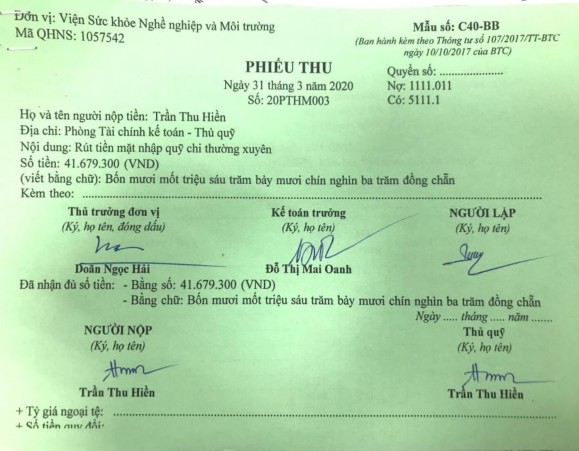 Đơn vị: Viện Sức khỏe Nghề nghiệp và Môi trường
Mã QHNS: 1057542
Mẫu số: C40-BB
(Ban hành kèm theo Thông tư số 107/2017/TT-BTC
ngày 10/10/2017 của BTC)
PHIẾU THU
Ngày 31 tháng 3 năm 2020
Số: 20PTHM003
Quyển số: ......................
Nợ: 1111.011
Có: 5111.1
Họ và tên người nộp tiền: Trần Thu Hiền
Địa chỉ: Phòng Tài chính kế toán - Thủ quỹ
Nội dung: Rút tiền mặt nhập quỹ chi thường xuyên
Số tiền: 41.679.300 (VND)
(viết bằng chữ): Bốn mươi mốt triệu sáu trăm bảy mươi chín nghìn ba trăm đồng chẵn
Kèm theo: ......................
Thủ trưởng đơn vị Kế toán trưởng NGƯỜI LẬP
(Ký, họ tên, đóng dấu) (Ký, họ tên) (Ký, họ tên)
Doãn Ngọc Hải Đỗ Thị Mai Oanh
Đã nhận đủ số tiền: - Bằng số: 41.679.300 (VND)
- Bằng chữ: Bốn mươi mốt triệu sáu trăm bảy mươi chín nghìn ba trăm đồng chẵn
Ngày ..... tháng ..... năm .......
NGƯỜI NỘP Thủ quỹ
(Ký, họ tên) (Ký, họ tên)
Trần Thu Hiền Trần Thu Hiền
+ Tỷ giá ngoại tệ: ......................
+ Số tiền quy đổi: